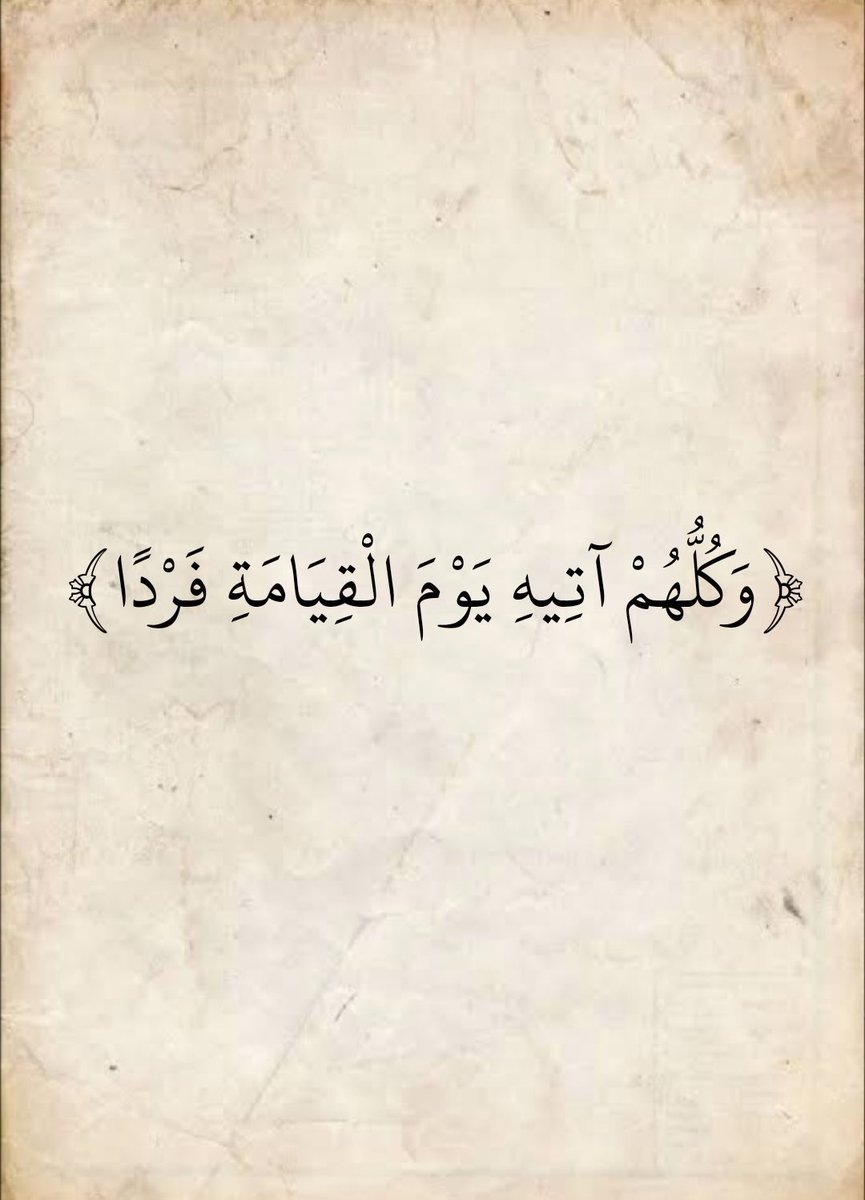 ﴿وَكُلُّهُمْ آتِيهِ يَوْمَ الْقِيَامَةِ فَرْدًا﴾